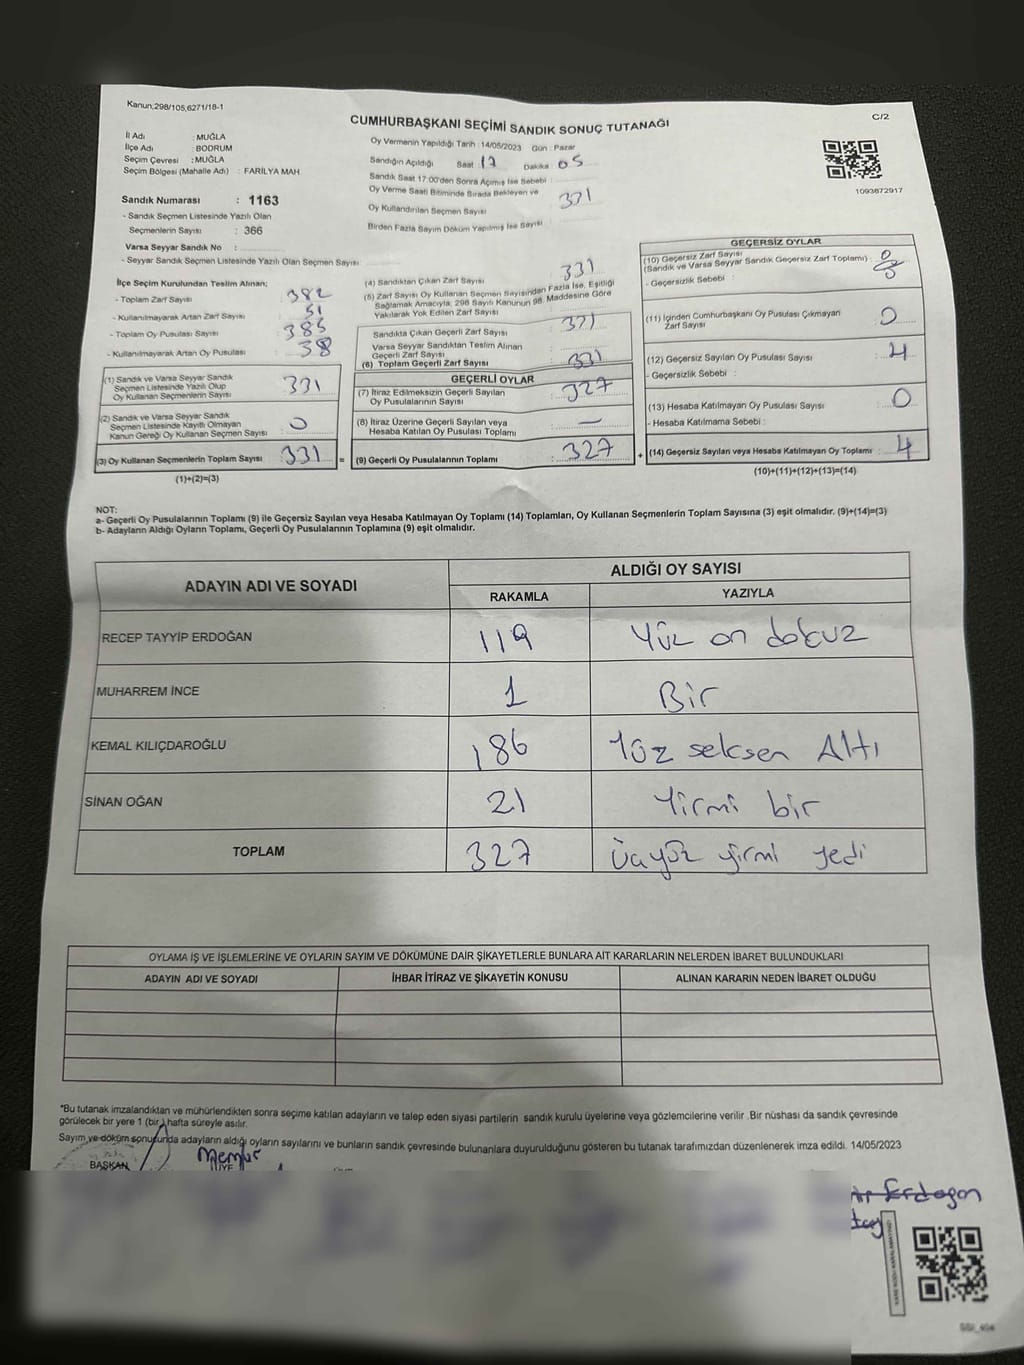 Kanun;298/105,6271/18-1
C/2
CUMHURBAŞKANI SEÇİMİ SANDIK SONUÇ TUTANAĞI
İl Adı : MUĞLA
İlçe Adı : BODRUM
Seçim Çevresi : MUĞLA
Seçim Bölgesi (Mahalle Adı) : FARİLYA MAH.
Oy Vermenin Yapıldığı Tarih :14/05/2023 Gün : Pazar
Sandığın Açıldığı Saat 17 Dakika 05
Sandık Saat 17:00'den Sonra Açımış İse Sebebi :
Oy Verme Saati Bitiminde Sırada Bekleyen ve
Oy Kullandırılan Seçmen Sayısı 331
Birden Fazla Sayım Döküm Yapılmış İse Sayısı
1093672917
Sandık Numarası : 1163
- Sandık Seçmen Listesinde Yazılı Olan
Seçmenlerin Sayısı : 366
Varsa Seyyar Sandık No :
- Seyyar Sandık Seçmen Listesinde Yazılı Olan Seçmen Sayısı:
İlçe Seçim Kurulundan Teslim Alınan;
- Toplam Zarf Sayısı : 382
- Kullanılmayarak Artan Zarf Sayısı : 51
- Toplam Oy Pusulası Sayısı : 385
- Kullanılmayarak Artan Oy Pusulası : 38
(1) Sandık ve Varsa Seyyar Sandık
Seçmen Listesinde Yazılı Olup
Oy Kullanan Seçmenlerin Sayısı : 331
(2) Sandık ve Varsa Seyyar Sandık
Seçmen Listesinde Kayıtlı Olmayan
Kanun Gereği Oy Kullanan Seçmen Sayısı : 0
(3) Oy Kullanan Seçmenlerin Toplam Sayısı : 331 =
(1)+(2)=(3)
(4) Sandıktan Çıkan Zarf Sayısı : 331
(5) Zarf Sayısı Oy Kullanan Seçmen Sayısından Fazla İse, Eşitliği
Sağlamak Amacıyla; 298 Sayılı Kanunun 98. Maddesine Göre
Yakılarak Yok Edilen Zarf Sayısı
Sandıkta Çıkan Geçerli Zarf Sayısı : 321
Varsa Seyyar Sandıktan Teslim Alınan
Geçerli Zarf Sayısı
(6) Toplam Geçerli Zarf Sayısı : 331
GEÇERLİ OYLAR
(7) İtiraz Edilmeksizin Geçerli Sayılan
Oy Pusulalarının Sayısı : 327
(8) İtiraz Üzerine Geçerli Sayılan veya
Hesaba Katılan Oy Pusulası Toplamı : —
(9) Geçerli Oy Pusulalarının Toplamı : 327 +
GEÇERSİZ OYLAR
(10) Geçersiz Zarf Sayısı
(Sandık ve Varsa Seyyar Sandık Geçersiz Zarf Toplamı) :
- Geçersizlik Sebebi :
(11) İçinden Cumhurbaşkanı Oy Pusulası Çıkmayan
Zarf Sayısı : 0
(12) Geçersiz Sayılan Oy Pusulası Sayısı : 4
- Geçersizlik Sebebi :
(13) Hesaba Katılmayan Oy Pusulası Sayısı : 0
- Hesaba Katılmama Sebebi :
(14) Geçersiz Sayılan veya Hesaba Katılmayan Oy Toplamı : 4
(10)+(11)+(12)+(13)=(14)
NOT:
a- Geçerli Oy Pusulalarının Toplamı (9) ile Geçersiz Sayılan veya Hesaba Katılmayan Oy Toplamı (14) Toplamları, Oy Kullanan Seçmenlerin Toplam Sayısına (3) eşit olmalıdır. (9)+(14)=(3)
b- Adayların Aldığı Oyların Toplamı, Geçerli Oy Pusulalarının Toplamına (9) eşit olmalıdır.
ADAYIN ADI VE SOYADI ALDIĞI OY SAYISI
RAKAMLA YAZIYLA
RECEP TAYYİP ERDOĞAN 119 Yüz on dokuz
MUHARREM İNCE 1 Bir
KEMAL KILIÇDAROĞLU 186 Yüz seksen Altı
SİNAN OĞAN 21 Yirmi bir
TOPLAM 327 Üçyüz yirmi yedi
OYLAMA İŞ VE İŞLEMLERİNE VE OYLARIN SAYIM VE DÖKÜMÜNE DAİR ŞİKAYETLERLE BUNLARA AİT KARARLARIN NELERDEN İBARET BULUNDUKLARI
ADAYIN ADI VE SOYADI İHBAR İTİRAZ VE ŞİKAYETİN KONUSU ALINAN KARARIN NEDEN İBARET OLDUĞU
*Bu tutanak imzalandıktan ve mühürlendikten sonra seçime katılan adayların ve talep eden siyasi partilerin sandık kurulu üyelerine veya gözlemcilerine verilir .Bir nüshası da sandık çevresinde
görülecek bir yere 1 (bir) hafta süreyle asılır.
Sayım ve döküm sonucunda adayların aldığı oyların sayılarını ve bunların sandık çevresinde bulunanlara duyurulduğunu gösteren bu tutanak tarafımızdan düzenlenerek imza edildi. 14/05/2023
Memur
BAŞKAN ÜYE
Erdogan